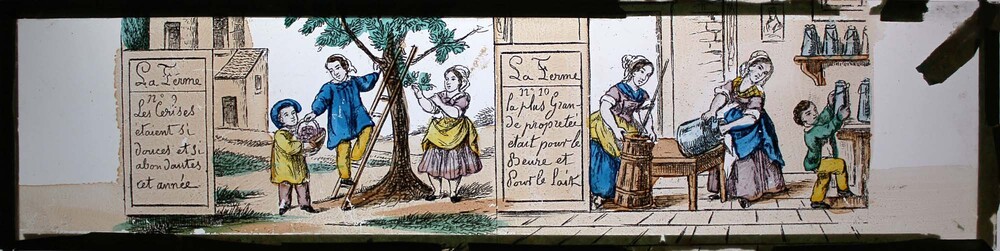 La Ferme
n° 9
Les Cerises
etaient si
douces et si
abondautes
cet année
La Ferme
n° 10
la plus Gran-
de propretée
etait pour le
Beure et
Pour le lait